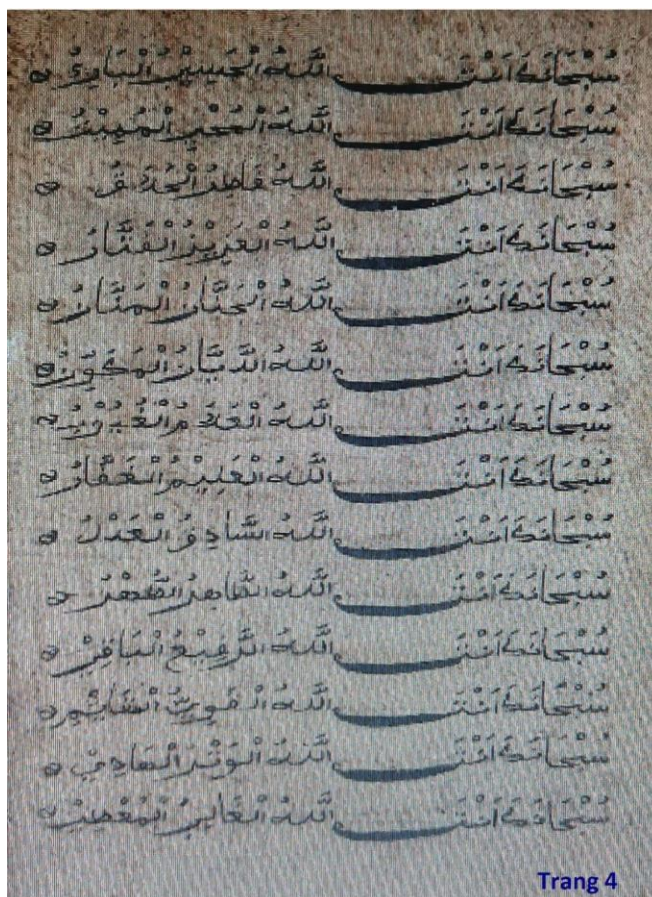 سُبْحَانَكَ اَنْتَ اللَّهُ الْحَسِيْبُ الْبَارِئُ
سُبْحَانَكَ اَنْتَ اللَّهُ الْمُحْيِ الْمُمِيْتُ
سُبْحَانَكَ اَنْتَ اللَّهُ فَاطِرُ
سُبْحَانَكَ اَنْتَ اللَّهُ الْعَزِيْزُ
سُبْحَانَكَ اَنْتَ اللَّهُ الْحَنَّانُ الْمَنَّانُ
سُبْحَانَكَ اَنْتَ اللَّهُ الدَّيَّانُ الْمَكَوِّنُ
سُبْحَانَكَ اَنْتَ اللَّهُ الْغُيُوْبُ
سُبْحَانَكَ اَنْتَ اللَّهُ الْعَلِيْمُ الْغَفَّارُ
سُبْحَانَكَ اَنْتَ اللَّهُ الْعَدْلُ
سُبْحَانَكَ اَنْتَ اللَّهُ الطَّاهِرُ الطُّهْرُ
سُبْحَانَكَ اَنْتَ اللَّهُ الرَّفِيْعُ الْبَاقِيْ
سُبْحَانَكَ اَنْتَ اللَّهُ الْقَوِيُّ
سُبْحَانَكَ اَنْتَ اللَّهُ الْوَتْرُ الْهَادِيْ
سُبْحَانَكَ اَنْتَ اللَّهُ الْمُعْطِيْ
Trang 4